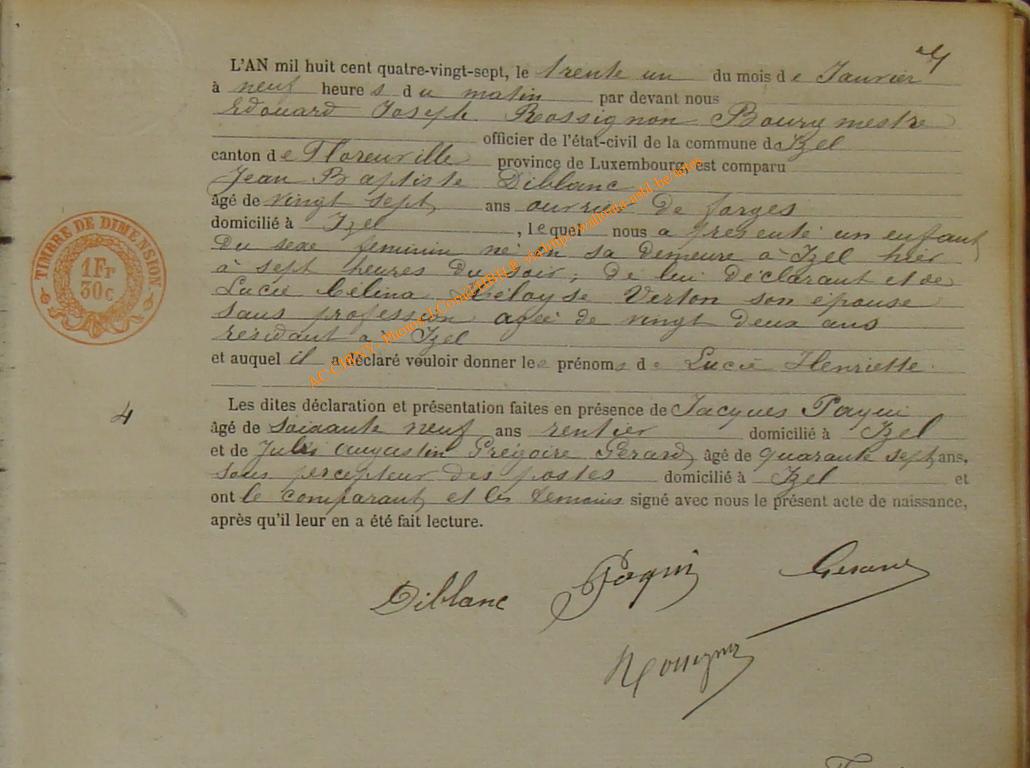 L'AN mil huit cent quatre-vingt-sept, le trente un du mois de Janvier
à neuf heures du matin par devant nous
Edouard Joseph Rossignon Bourgmestre
officier de l'état-civil de la commune d'Izel
canton de Florenville province de Luxembourg, est comparu
Jean Baptiste Diblanc
âgé de vingt sept ans ouvrier de forges
domicilié à Izel, lequel nous a présenté un enfant
du sexe feminin né en sa demeure à Izel hier
à sept heures du soir, de lui déclarant et de
Lucie Célina Héloyse Verton son épouse
sans profession agée de vingt deux ans
résidant à Izel
et auquel il a déclaré vouloir donner les prénoms de Lucie Henriette
Les dites déclaration et présentation faites en présence de Jacques Paqui
âgé de soixante neuf ans rentier domicilié à Izel
et de Jules Augustin Grégoire Gérard, âgé de quarante sept ans,
sous percepteur des postes domicilié à Izel et
ont le comparant et les temoins signé avec nous le présent acte de naissance,
après qu'il leur en a été fait lecture.
TIMBRE DE DIMENSION
1 Fr
30 c
4
Diblanc Paqui Gerard
Rossignon